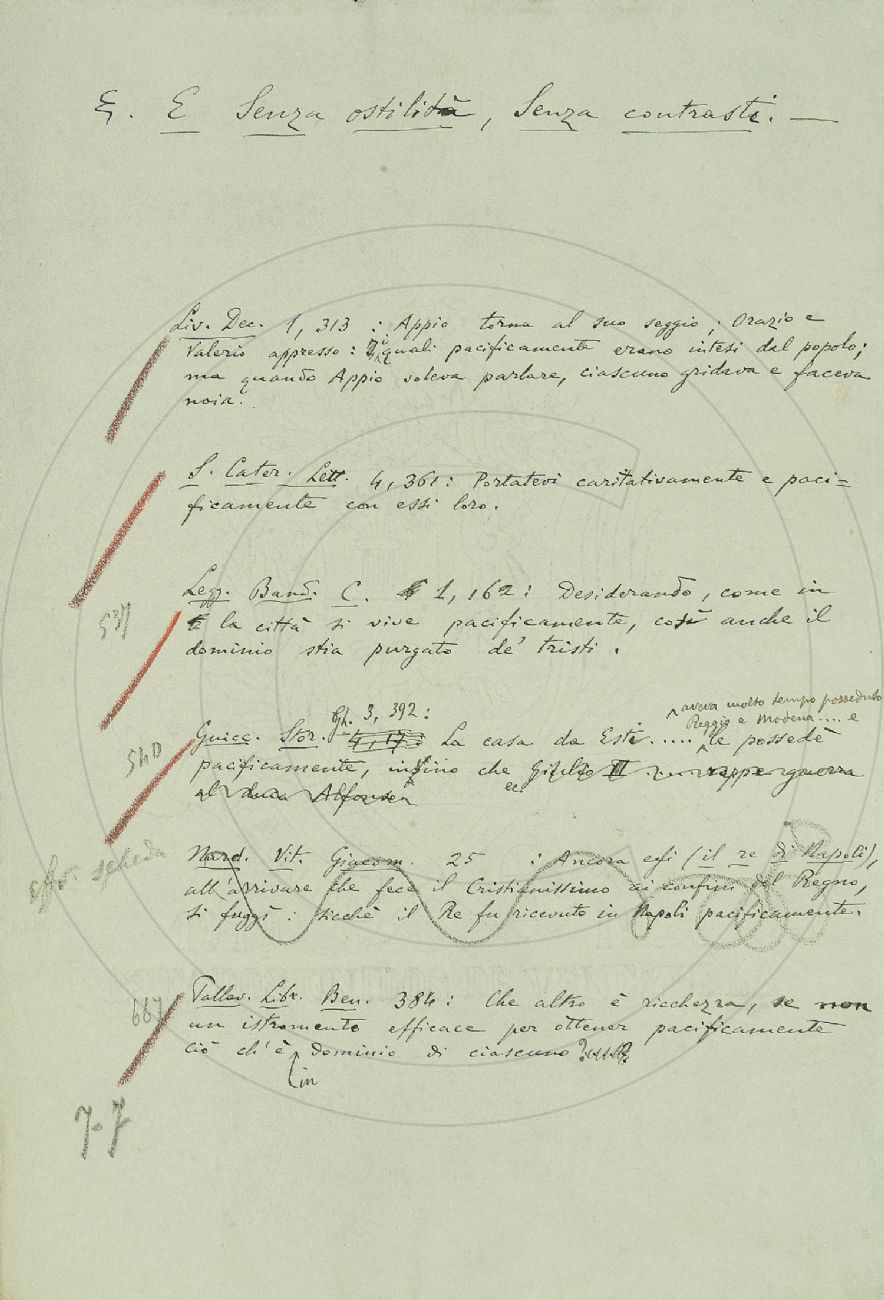 §. E Senza ostilità, Senza contrasti. —
Liv. Dec. 1, 313 : Appio torna al suo seggio; Orazio e
Valerio appresso: i quali pacificamente erano intesi dal popolo;
ma quando Appio voleva parlare, ciascuno gridava e faceva
noia.
S. Cater. Lett. 4, 361: Portatevi caritativamente e paci=
ficamente con essi loro.
Legg. Band. C. 1, 162: Desiderando, come in
537
la città si vive pacificamente, così anche il
dominio stia purgato de' tristi.
aveva molto tempo posseduto
Gh. 3, 392:
Reggio e Modena .... e
Guicc. Stor. 4, 17: La casa da Esti ..... le possedè
540
pacificamente, insino che Giulio II roppe guerra
ec.
al duca Alfonso
Nard. Vit. Giacom. 25 : Ancora egli (il re di Napoli),
scheda
all'arrivare che fece il Cristianissimo ai confini del Regno,
si fuggì: sicchè il Re fu ricevuto in Napoli pacificamente.
Pallav. Libr. Ben. 384: Che altro è ricchezza, se non
667
un istromento efficace per ottener pacificamente
ciò ch'è dominio di ciascuno
in
7-7